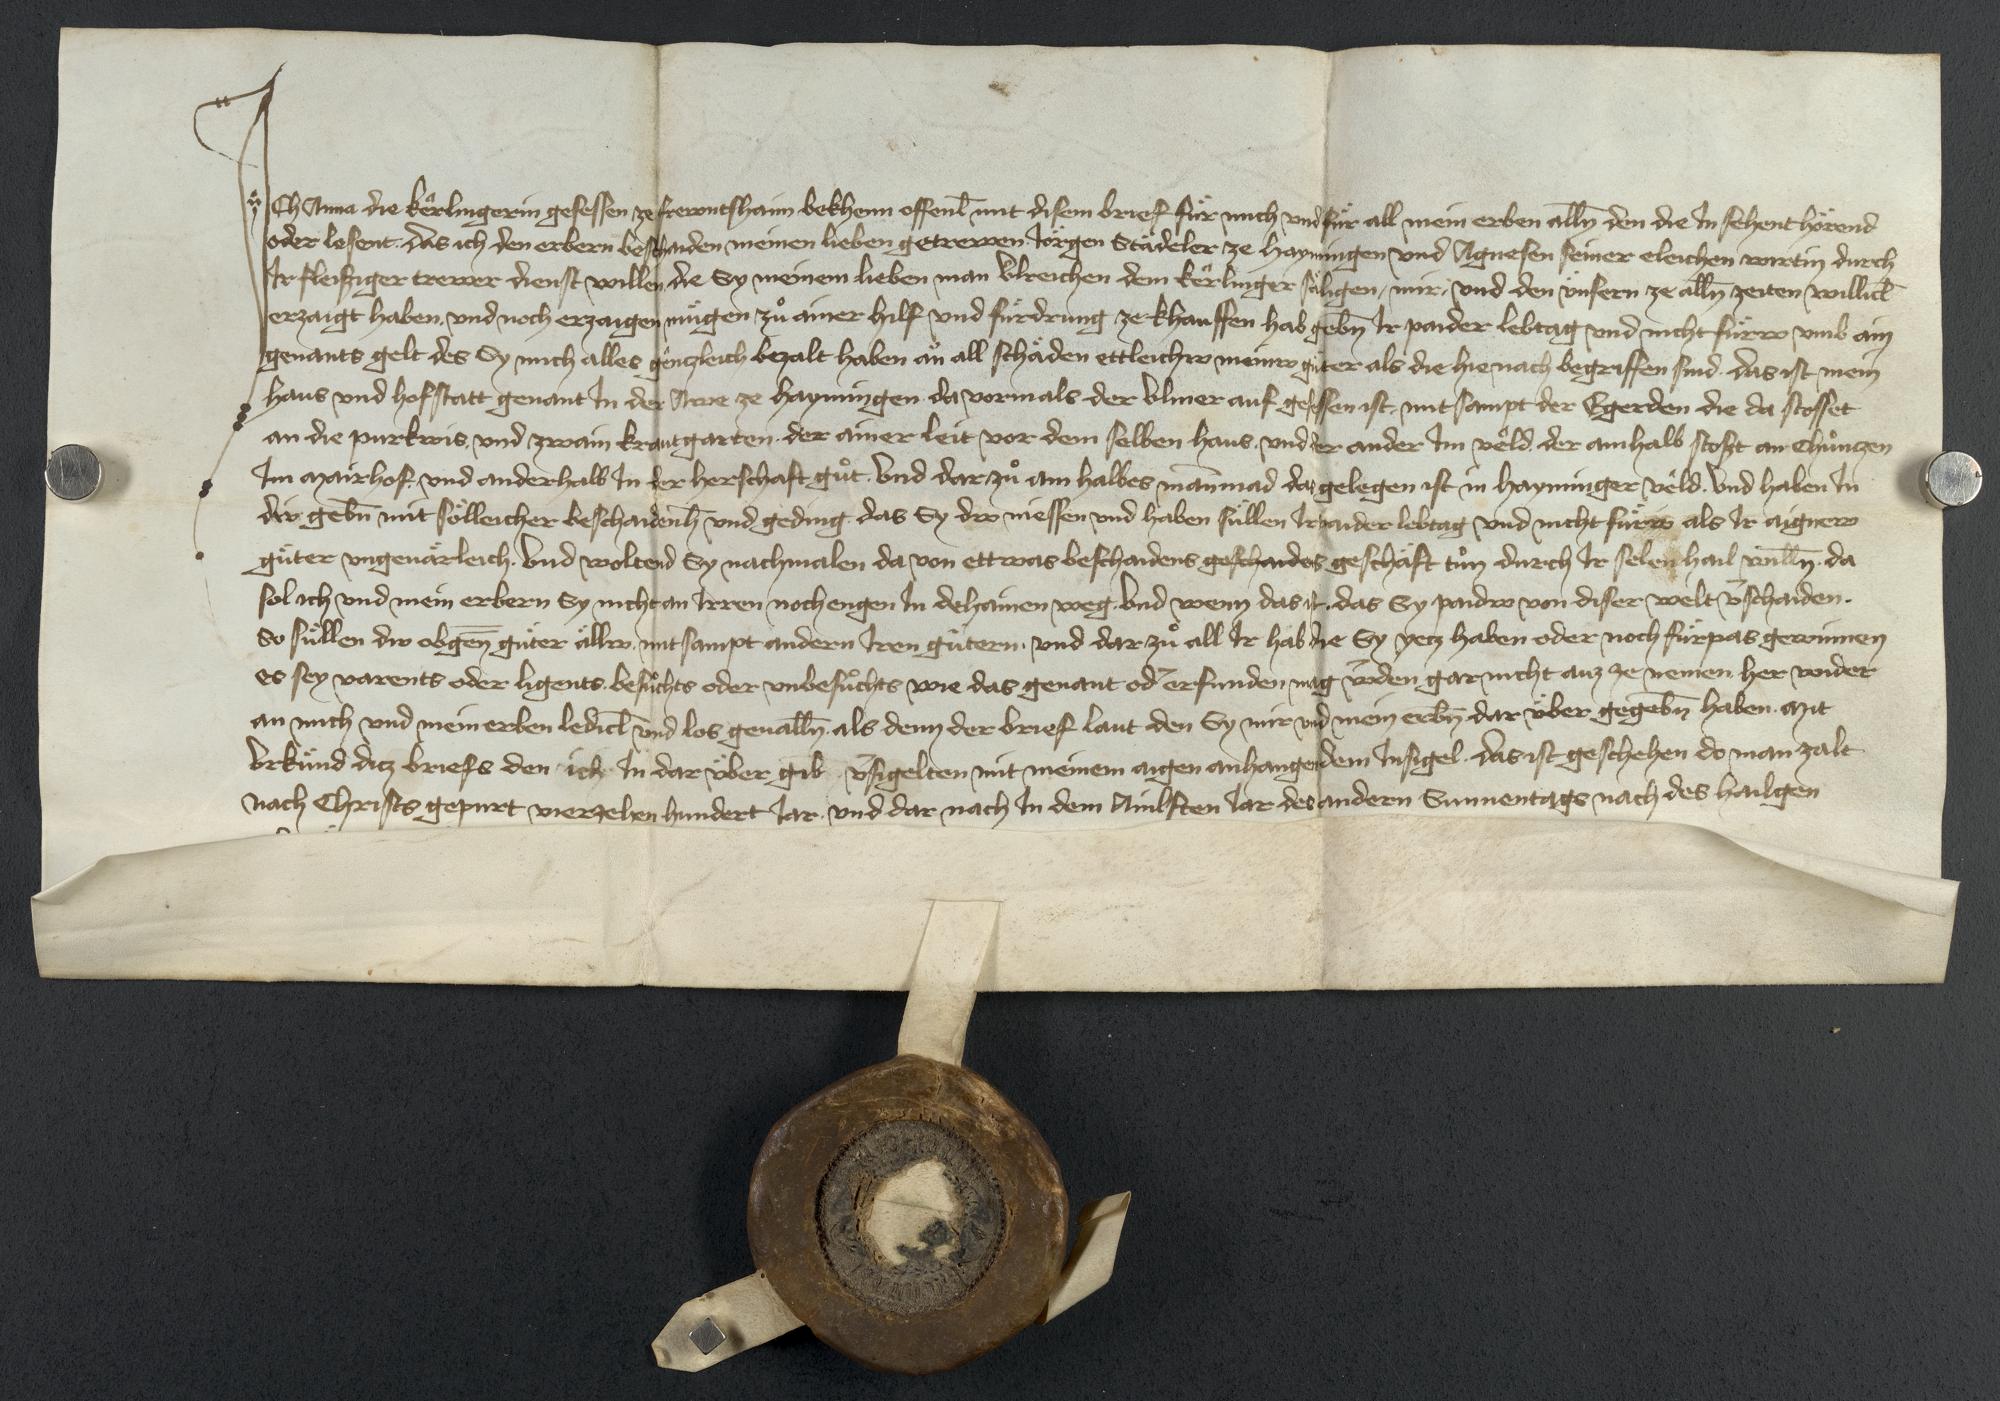 Ich Anna die Kërlingerin gesessen ze frewntshaim bekhenn offenl̄ mit disem brief für mich vnd für all mein erben alln̄ den die In sehent hörend
oder lesent. das ich den erbern beschaiden meinen lieben getrewen. Jörgen Städeler ze Haymingen vnd Agnesen seiner eleichen wirtin durch
Ir fleisziger trewer dienst willen die Sy meinem lieben man Vlreichen dem kërlinger säligen, mir, vnd den vnsern ze alln̄ zeiten willicl̄
erzaigt haben. vnd noch erzaigen mügen zů ainer hilf vnd fürdrung ze khauffen hab gebn̄ Ir paider lebtag vnd nicht fürw vmb ain
genants gelt des Sy mich alles gënczleich bezalt haben an all schäden ettleichw meinw güter als die hie nach begriffen sind. das ist mein
haus vnd hofstatt genant In der Awe ze Haymingen. da vormals der Vlmer auf gesessen ist. mit sampt der Egerden die da stosset
an die purkwis. vnd zwain krautgarten. der ainer leit vor dem selben haus. vnd der ander Im vëld. der ainhalb stoszt an Chůnczen
Im Mairhof. vnd anderhalb In der herschaft gůt. Vnd dar zů ain halbes manmad das gelegen ist in Hayminger vëld. Vnd haben In
die gebn̄ mit sölleicher beschaidenh̄ vnd geding. das Sy dw niessen vnd haben süllen Ir paider lebtag vnd nicht fürw als Ir aignew
güter vngeuärleich. Vnd woltend Sy nachmalen da von ettwas beschaidens geschaides geschäft tůn durch Ir selen hail willn̄. da
sol ich vnd mein erbern Sy nicht an Irren noch engen In dehainen weg. Vnd wenn das ist. das Sy paidw von diser welt v̄schaiden.
So süllen dw obgen̄ güter ällw. mit sampt andern Iren gütern. vnd dar zů all Ir hab die Sy yecz haben oder noch fürpas gewinnen
es sey varents oder ligents. besůchts oder vnbesůchts wie das genant od̄ erfunden mag w̄den. gar nicht auz ze nemen. her wider
an mich vnd mein erben ledicl̄ vnd los geualln̄. als denn der brief laut den Sy mir vnd mein erbn̄ dar über gegebn̄ haben. Mit
Vrkünd dicz briefs den ich In dar über gib v̄sigelten mit meinem aigen anhangendem Insigel. das ist geschehen do man zalt
nach Christs gepurt vierzehen hundert Jar. vnd dar nach In dem Ainlften Jar des andern Sunnentags nach des hailgen